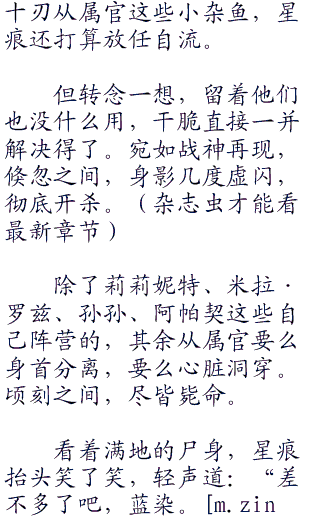 十刃从属官这些小杂鱼，星
痕还打算放任自流。
但转念一想，留着他们
也没什么用，干脆直接一并
解决得了。宛如战神再现，
倏忽之间，身影几度虚闪，
彻底开杀。（杂志虫才能看
最新章节）
除了莉莉妮特、米拉·
罗兹、孙孙、阿帕契这些自
己阵营的，其余从属官要么
身首分离，要么心脏洞穿。
顷刻之间，尽皆毙命。
看着满地的尸身，星痕
抬头笑了笑，轻声道：“差
不多了吧，蓝染。[m.zin